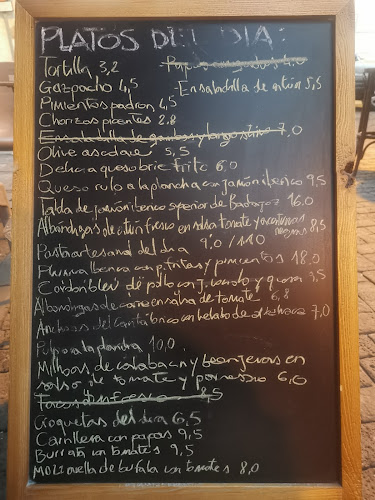 PLATOS DEL DIA:
Tortilla 3,2
Gazpacho 4,5
-Ensaladilla de atún 5,5
Pimientos padron 4,5
Chorizos picantes 2.8
Ensaladilla de gambas y langostino 7,0
Olive ascolane 5,5
queso brie frito 6,0
Queso rulo a la plancha con jamón iberico 9,5
Tabla de jamón iberico superior de Badajoz 16.0
Albondigas de atun fresco en salsa tomate y aceitunas
negras 8,5
Pasta artesanal del dia 9.0 / 11.0
Pluma Iberica con p. fritas y pimientos 18.0
Cordonbleu de pollo con j. cocido y queso 7,5
Albondigas de carne en salsa de tomate 6,8
Anchoas del cantabrico con helado de 7,0
Pulpo a la plancha 10,0
Milhojas de calabacin y berenjenas en
salsa de tomate y parmesano 6,0
8,5
Croquetas del dia 6,5
Carrillera con papas 9,5
Burrata con tomates 9,5
Mozzarella de bufala con tomates 8,0